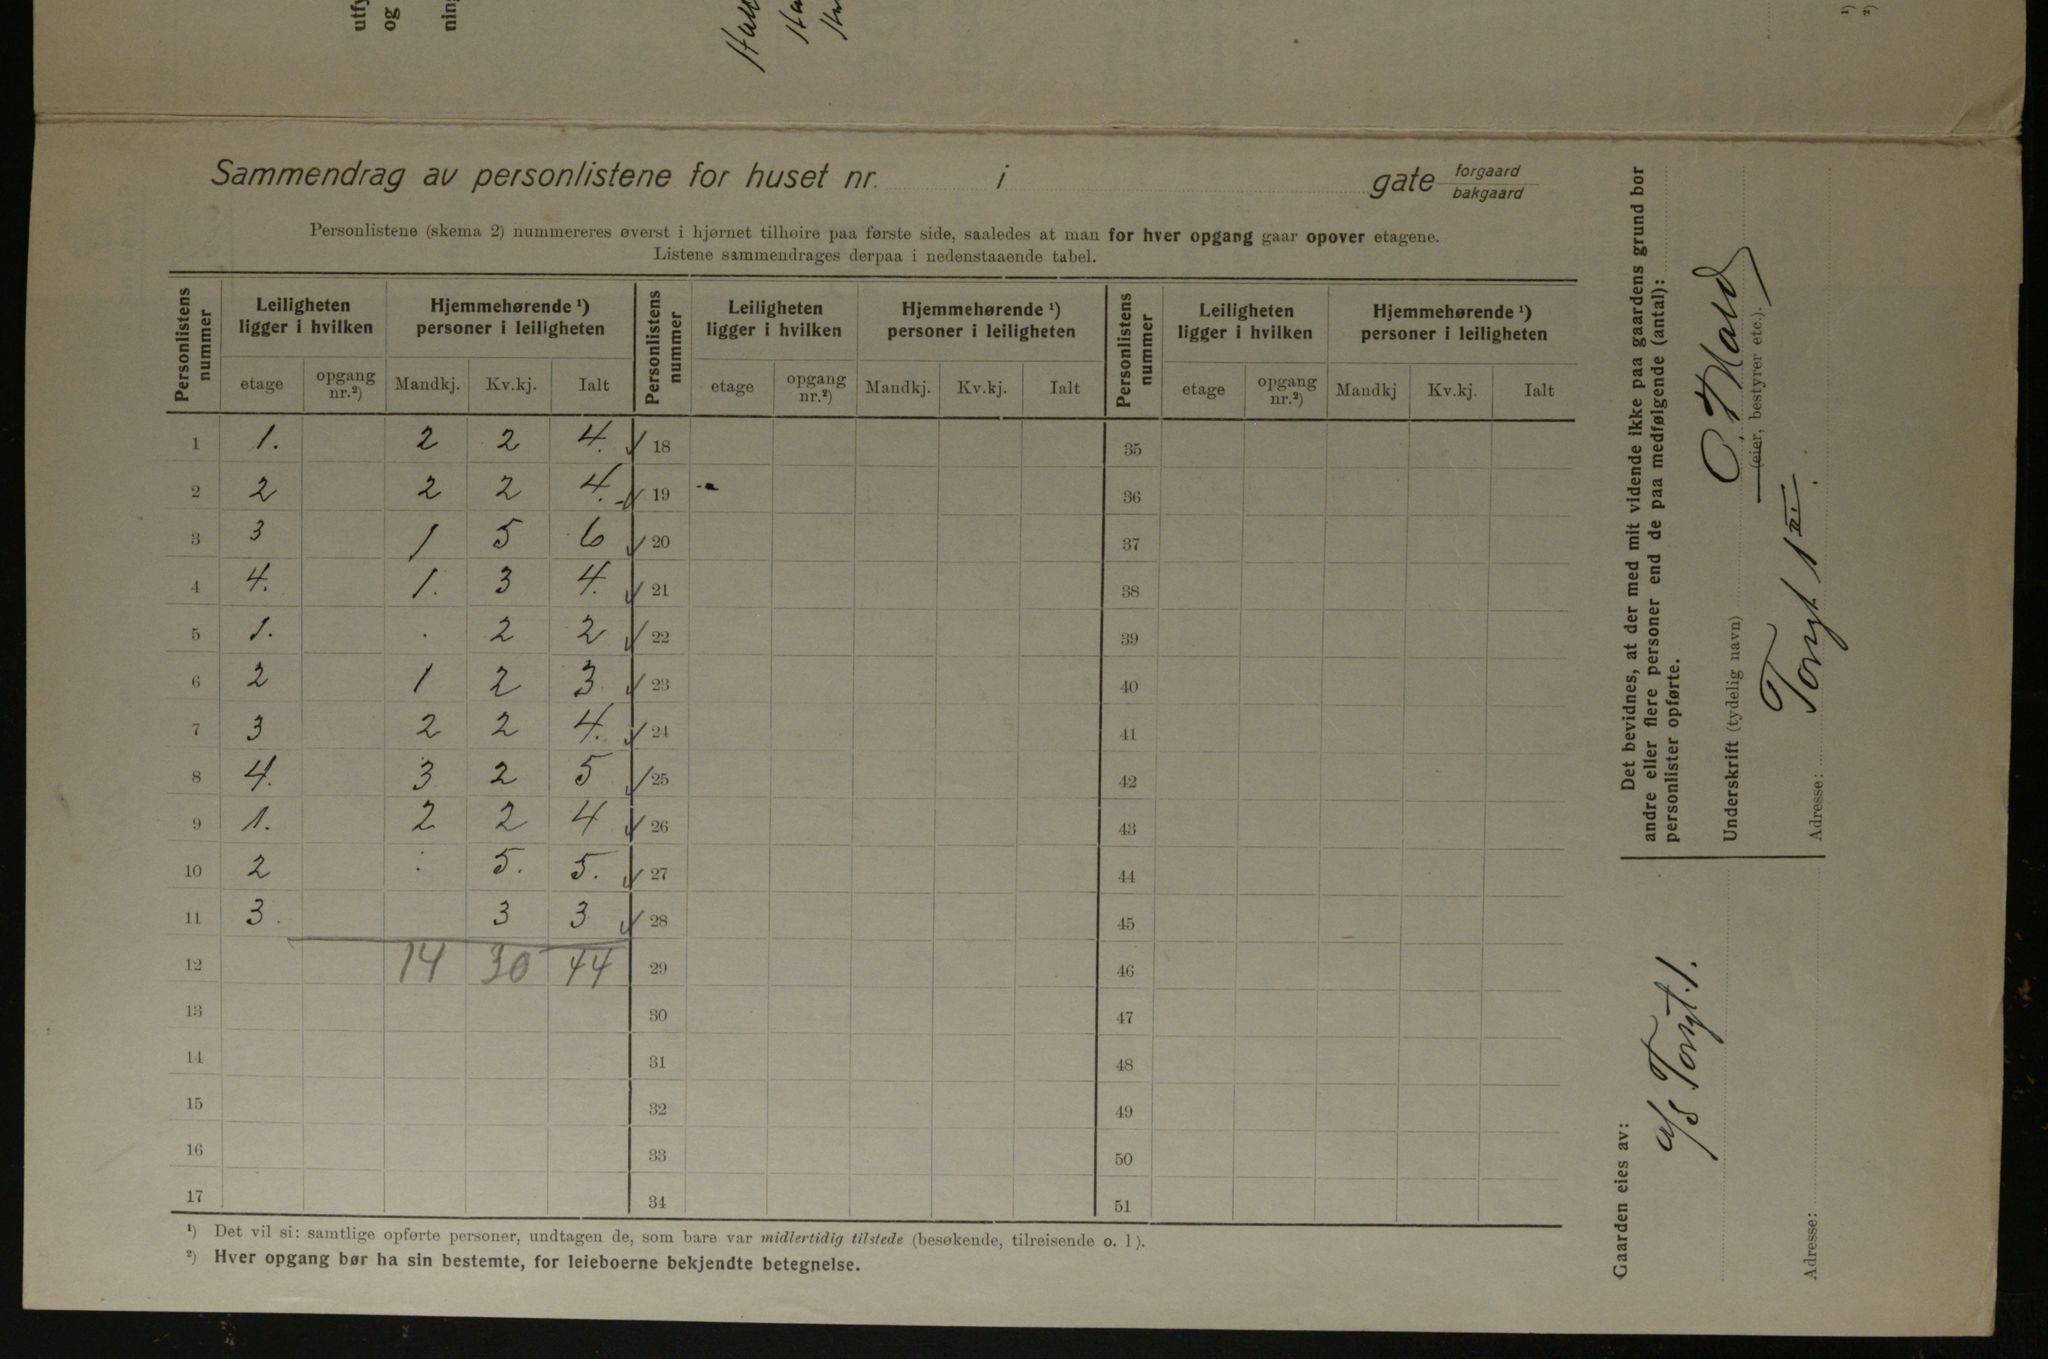 utfy
og
ning
¹)
²)
Sammendrag av personlistene for huset nr. i gate forgaard
bakgaard
Personlistene (skema 2) nummereres øverst i hjørnet tilhøire paa første side, saaledes at man for hver opgang gaar opover etagene.
Listene sammendrages derpaa i nedenstaaende tabel.
Personlistens nummer Leiligheten ligger i hvilken Hjemmehørende ¹) personer i leiligheten Personlistens nummer Leiligheten ligger i hvilken Hjemmehørende ¹) personer i leiligheten Personlistens nummer Leiligheten ligger i hvilken Hjemmehørende ¹) personer i leiligheten
etage opgang nr.²) Mandkj. Kv.kj. Ialt etage opgang nr.²) Mandkj. Kv.kj. Ialt etage opgang nr.²) Mandkj Kv.kj. Ialt
1 1. 2 2 4. 18 35
2 2 2 2 4. 19 36
3 3 1 5 6 20 37
4 4. 1. 3 4. 21 38
5 1. . 2 2 22 39
6 2 1 2 3 23 40
7 3 2 2 4. 24 41
8 4. 3 2 5 25 42
9 1. 2 2 4 26 43
10 2 . 5. 5. 27 44
11 3. 3 3 28 45
12 14 30 44 29 46
13 30 47
14 31 48
15 32 49
16 33 50
17 34 51
¹) Det vil si: samtlige opførte personer, undtagen de, som bare var midlertidig tilstede (besøkende, tilreisende o. l).
²) Hver opgang bør ha sin bestemte, for leieboerne bekjendte betegnelse.
Det bevidnes, at der med mit vidende ikke paa gaardens grund bor
andre eller flere personer end de paa medfølgende (antal):
personlister opførte.
Underskrift (tydelig navn)
(eier, bestyrer etc.).
Adresse: Torgt 1 III.
Gaarden eies av:
A/S Torgt. 1.
Adresse: